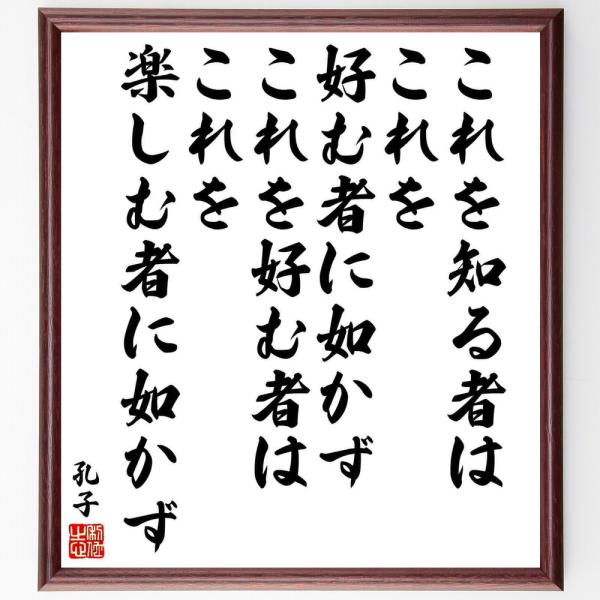 これを知る者は
これを
好む者に如かず
これを好む者は
これを
楽しむ者に如かず
孔子